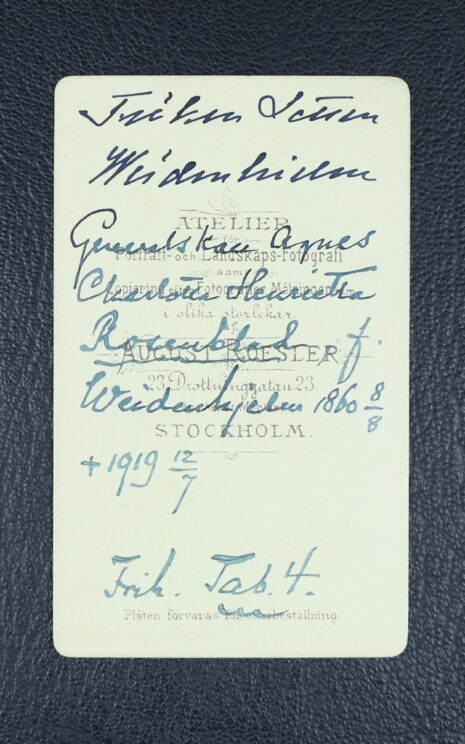 Fröken Lotten
Weidenhielm
ATELIER
för
Generalskan Agnes
Porträtt- och Landskaps-Fotografi
samt
Charlotta Henrietta
Kopiering efter Fotografier Målningar m.m.
i olika storlekar
af
Rosenblad, f.
AUGUST ROESLER
23 Drottninggatan 23
Weidenhjelm 1860 8/8
STOCKHOLM.
+ 1919 12/7
Frih. Tab. 4.
Plåten förvaras för efterbeställning.